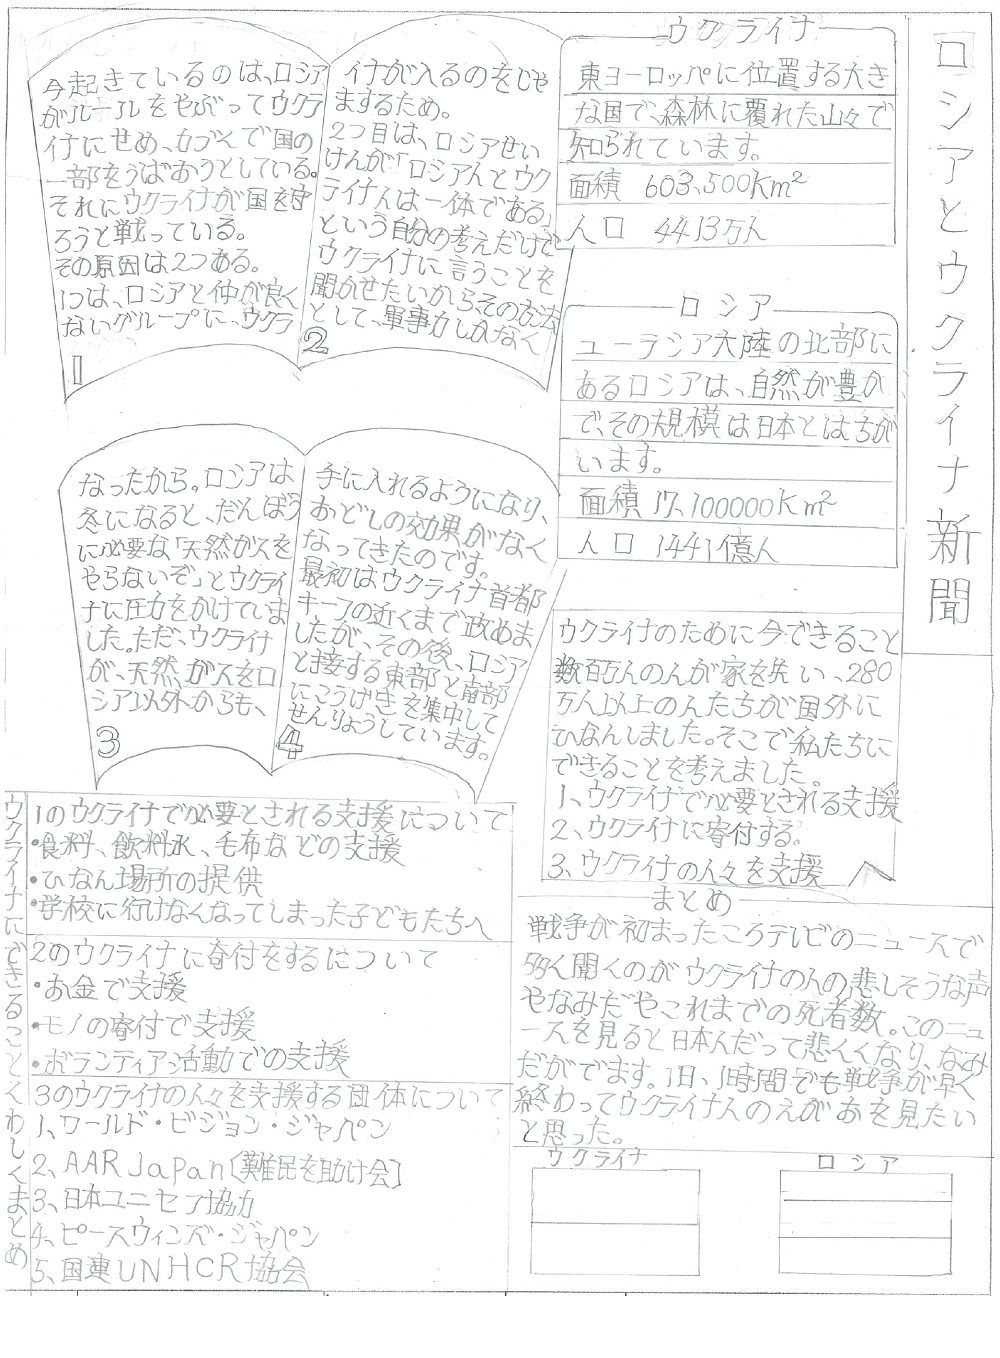 ロシアとウクライナ新聞
ウクライナ
東ヨーロッパに位置する大き
な国で、森林に覆れた山々で
知られています。
面積 603,500Km²
人口 4413万人
ロシア
ユーラシア大陸の北部に
あるロシアは、自然が豊か
で、その規模は日本とはちが
います。
面積 17,100000Km²
人口 1441億人
今起きているのは、ロシア
がルールをやぶってウクラ
イナにせめ、力づくで国の
一部をうばおうとしている。
それにウクライナが国を守
ろうと戦っている。
その原因は2つある。
1つは、ロシアと仲が良く
ないグループに、ウクラ
1
イナが入るのをじゃ
まするため。
2つ目は、ロシアせい
けんが「ロシア人とウク
ライナ人は一体である」
という自分の考えだけで
ウクライナに言うことを
聞かせたいから、その方法
として、軍事力しかなく
2
なったから。ロシアは
冬になると、だんぼう
に必要な「天然ガスを
やらないぞ」とウクライ
ナに圧力をかけていま
した。ただ、ウクライナ
が、天然、ガスをロ
シア以外からも、
3
手に入れるようになり、
おどしの効果がなく
なってきたのです。
最初はウクライナ首都
キーフの近くまで政めま
したが、その後、ロシア
と接する東部と南部
にこうげきを集中して
せんりょうしています。
4
ウクライナのために今できること
数百万人の人が家を失い、280
万人以上の人たちが国外に
ひなんしました。そこで私たちに
できることを考えました。
1、ウクライナで必要とされる支援
2、ウクライナに寄付する。
3、ウクライナの人々を支援
ウクライナにできることくわしくまとめ
1のウクライナで必要とされる支援について
・食料、飲料水、毛布などの支援
・ひなん場所の提供
・学校に行けなくなってしまった子どもたちへ
2のウクライナに寄付をするについて
・お金で支援
・モノの寄付で支援
・ボランティア活動での支援
3のウクライナの人々を支援する団体について
1、ワールド・ビジョン・ジャパン
2、AAR Japan〔難民を助け会〕
3、日本ユニセフ協力
4、ピースウィンズ・ジャパン
5、国連UNHCR協会
まとめ
戦争が初まったころテレビのニュースで
多く聞くのがウクライナの人の悲しそうな声
やなみだやこれまでの死者数。このニュ
ースを見ると日本人だって悲くくなり、なみ
だがでます。1日、1時間でも戦争が早く
終わってウクライナ人のえがおを見たい
と思った。
ウクライナ
ロシア